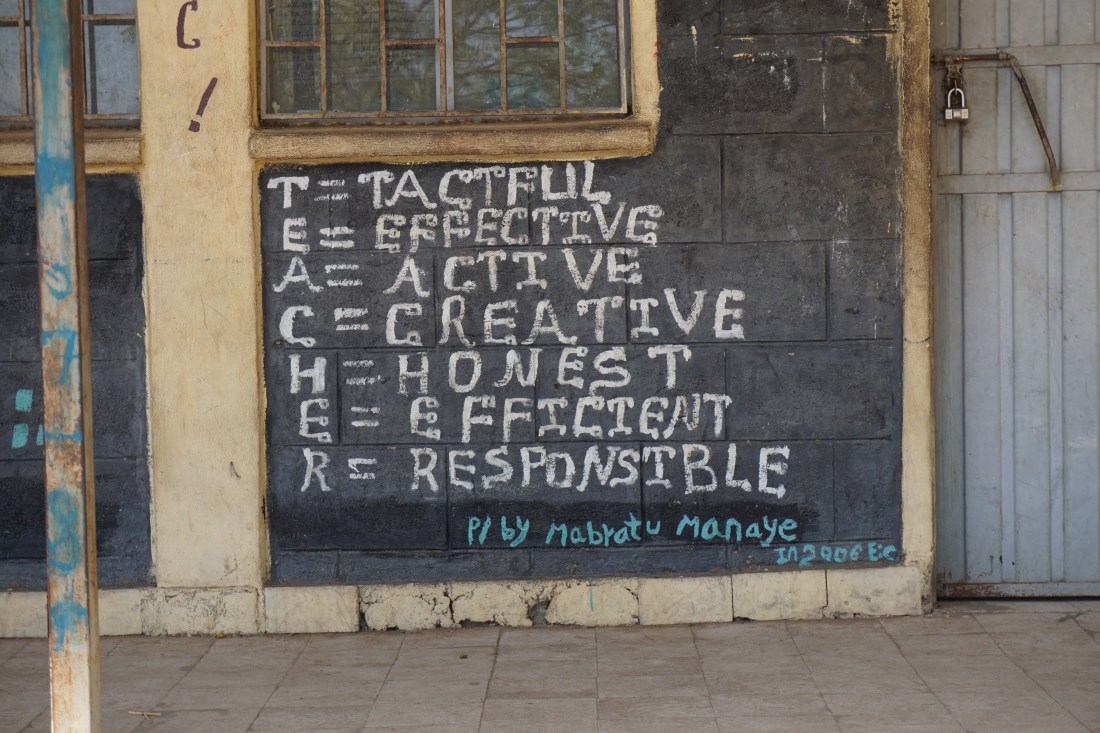 C
!
T = TACTFUL
E = EFFECTIVE
A = ACTIVE
C = CREATIVE
H = HONEST
E = EFFICIENT
R = RESPONSIBLE
P/ by Mabratu Manaye
In 2006 E.c